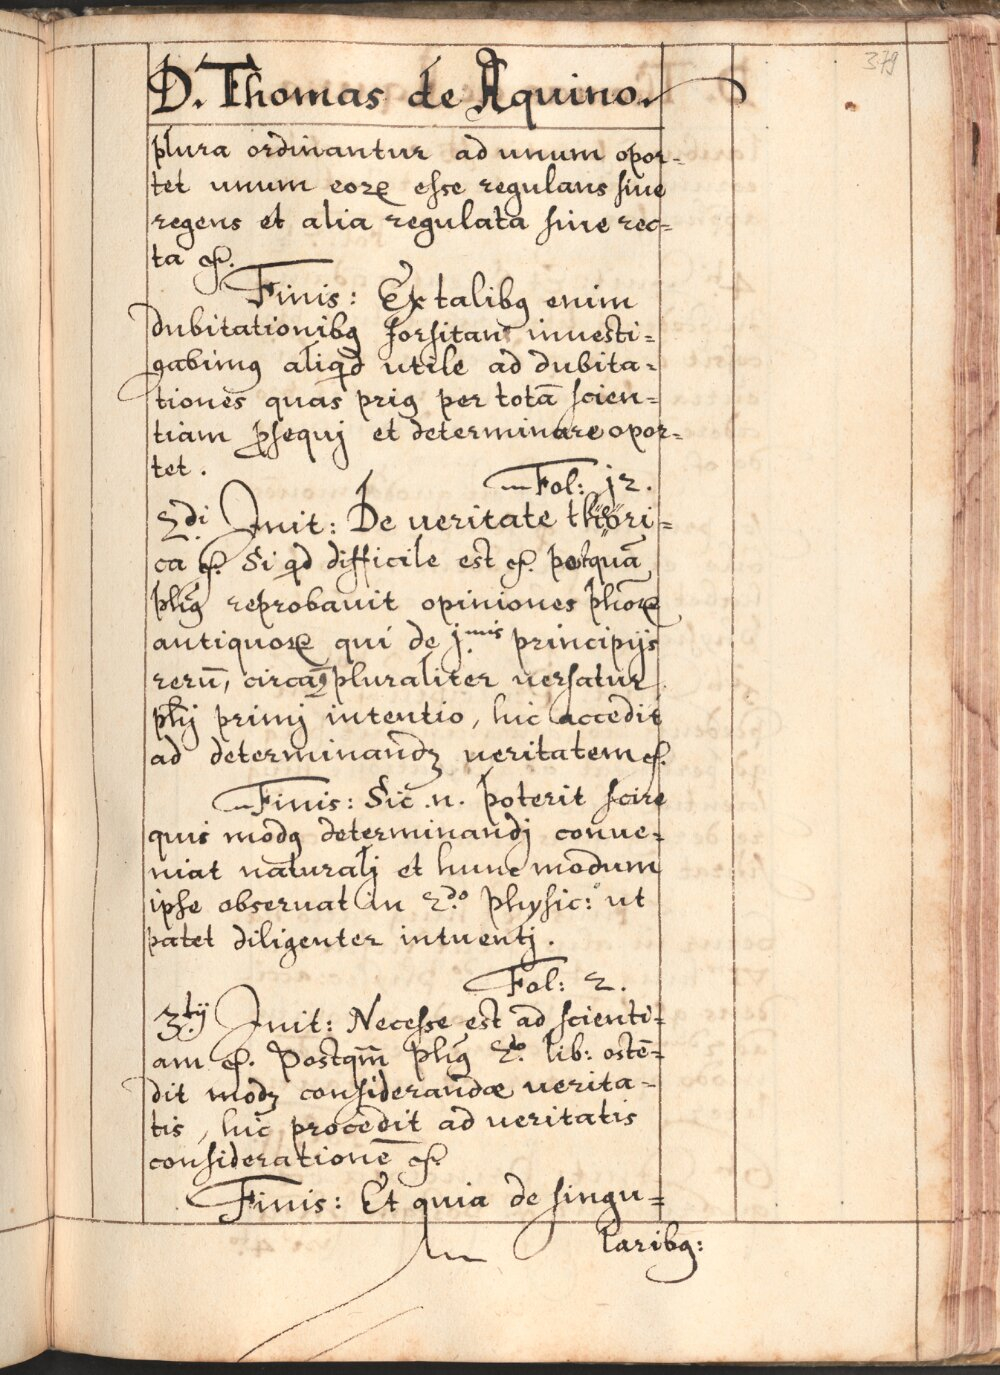 379
D. Thomas de Aquino.
plura ordinantur ad unum opor-
tet unum eorꝝ esse regulans sive
regens et alia regulata sive rec-
ta &.
Finis: Ex talibꝗ enim
dubitationibꝗ forsitan investi-
gabimꝗ aliqd utile ad dubita-
tiones quas priꝗ per totā scien-
tiam ꝓsequj et determinare opor-
tet.
Fol: 12.
2di Init: De veritate theori-
ca &. Si qd difficile est &. postquā
phūs reprobavit opiniones phorꝝ
antiquorꝝ qui de j.mis principijs
rerū, circaq pluraliter versatur
phj primj intentio, hic accedit
ad determinandꝫ veritatem &.
Finis: Sic .n. poterit scire
quis modꝗ determinandj conve-
niat naturalj et hunc modum
ipse observat in 2.do physic: ut
patet diligenter intuentj.
Fol: 2.
3.tij Init: Necesse est ad scienti-
am &. Postqm̄ phūs 2.do lib: ostē-
dit modꝫ considerandæ verita-
tis, hic procedit ad veritatis
considerationē &.
Finis: Et quia de singu-
laribꝗ: